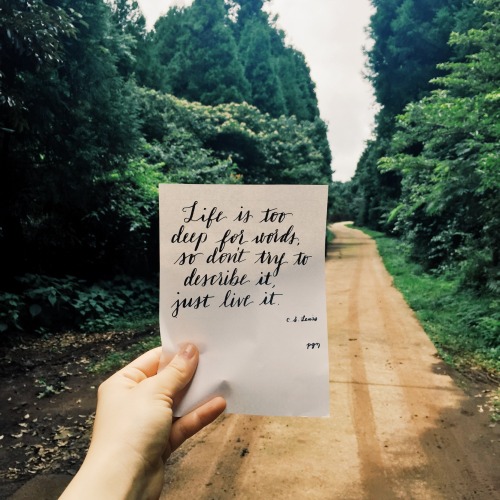 Life is too
deep for words,
so don't try to
describe it,
just live it.
C. S. Lewis